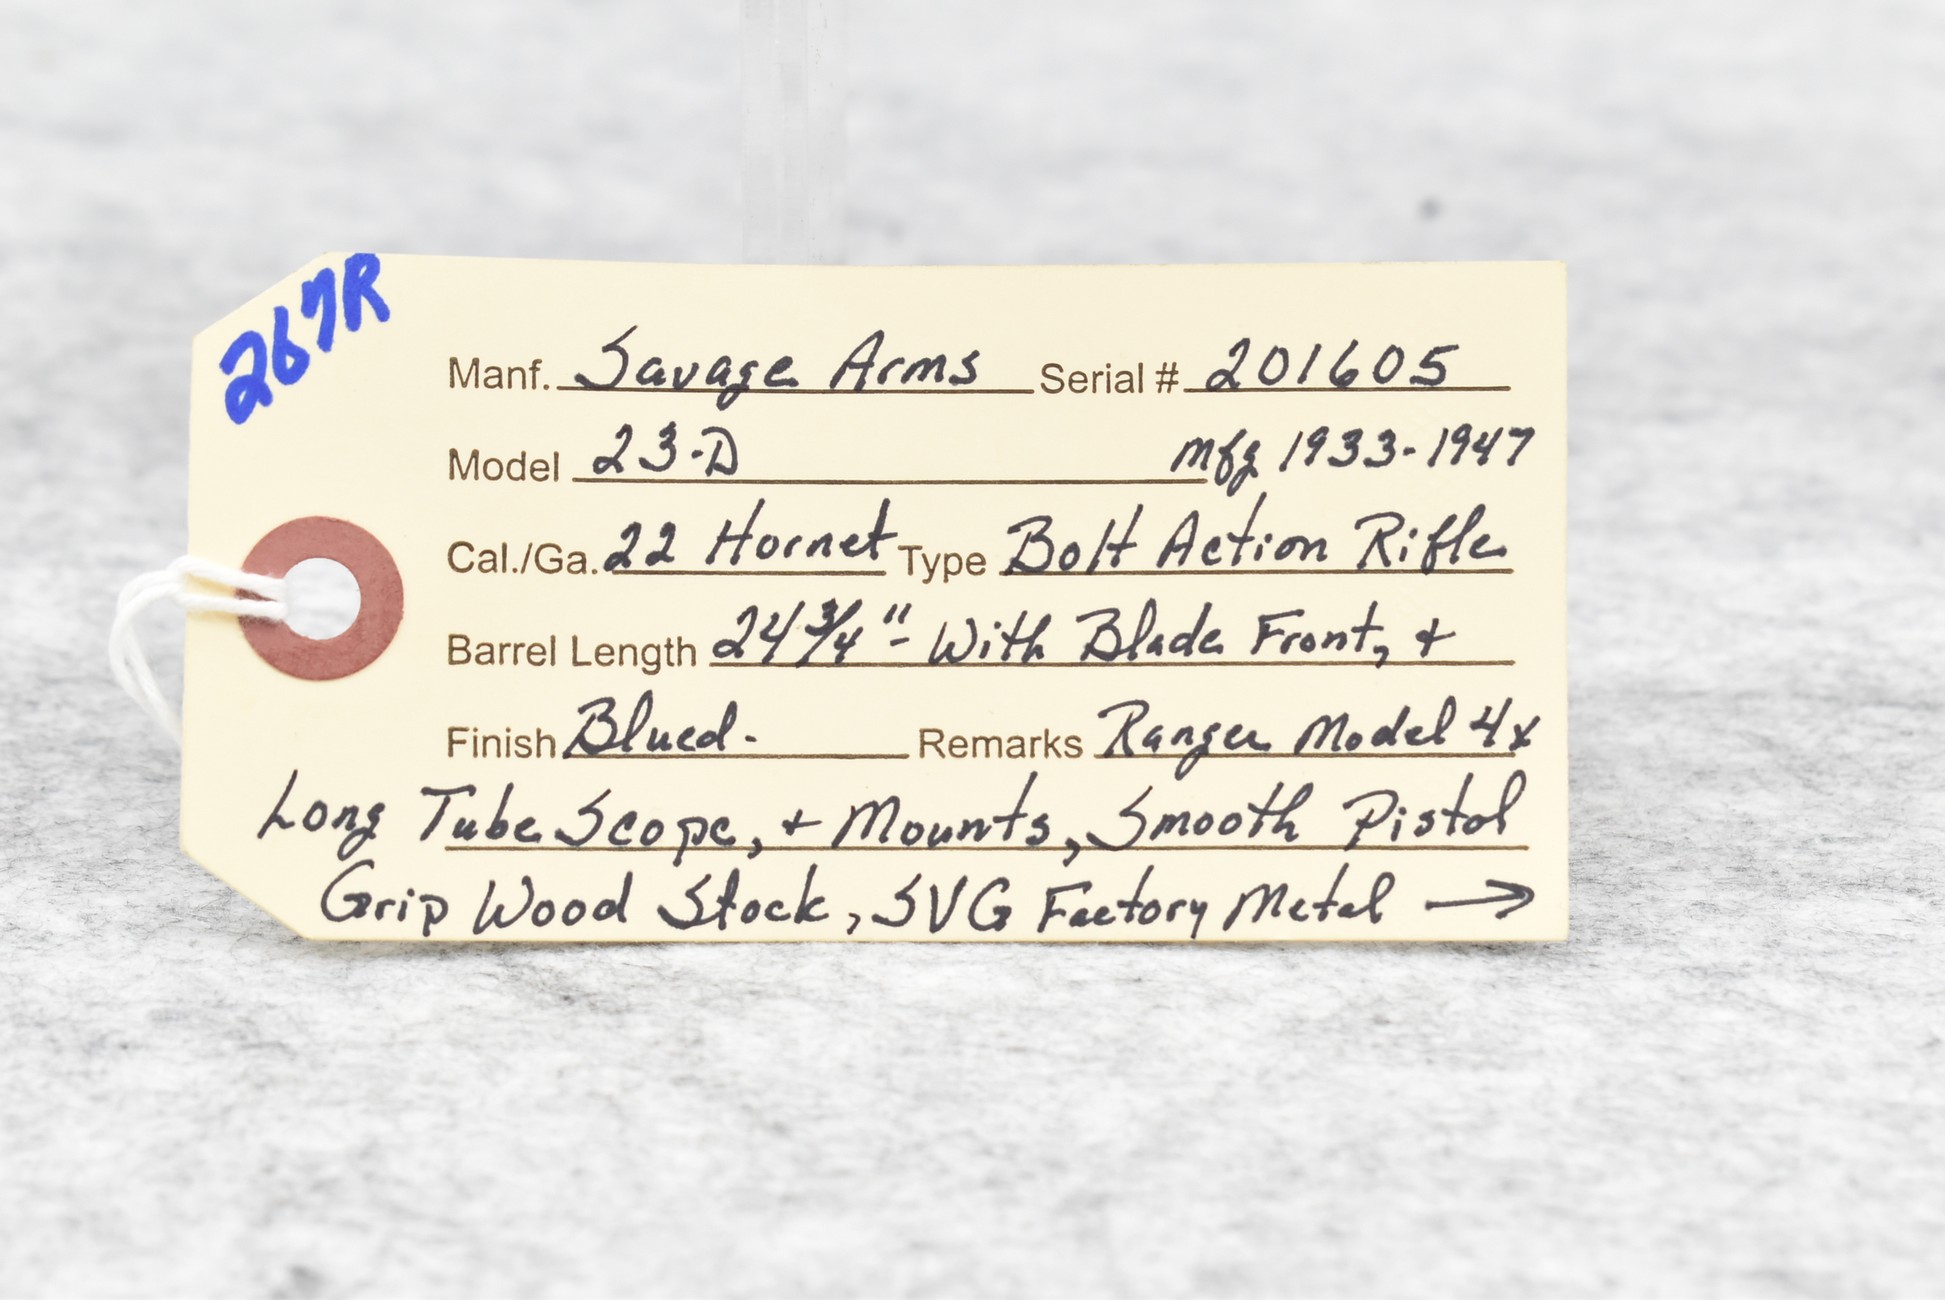 267R
Manf. Savage Arms Serial # 201605
Model 23-D mfg 1933-1947
Cal./Ga. 22 Hornet Type Bolt Action Rifle
Barrel Length 24 3/4" - With Blade Front, +
Finish Blued. Remarks Ranger Model 4x
Long Tube Scope, + Mounts, Smooth Pistol
Grip Wood Stock, SVG Factory Metal →